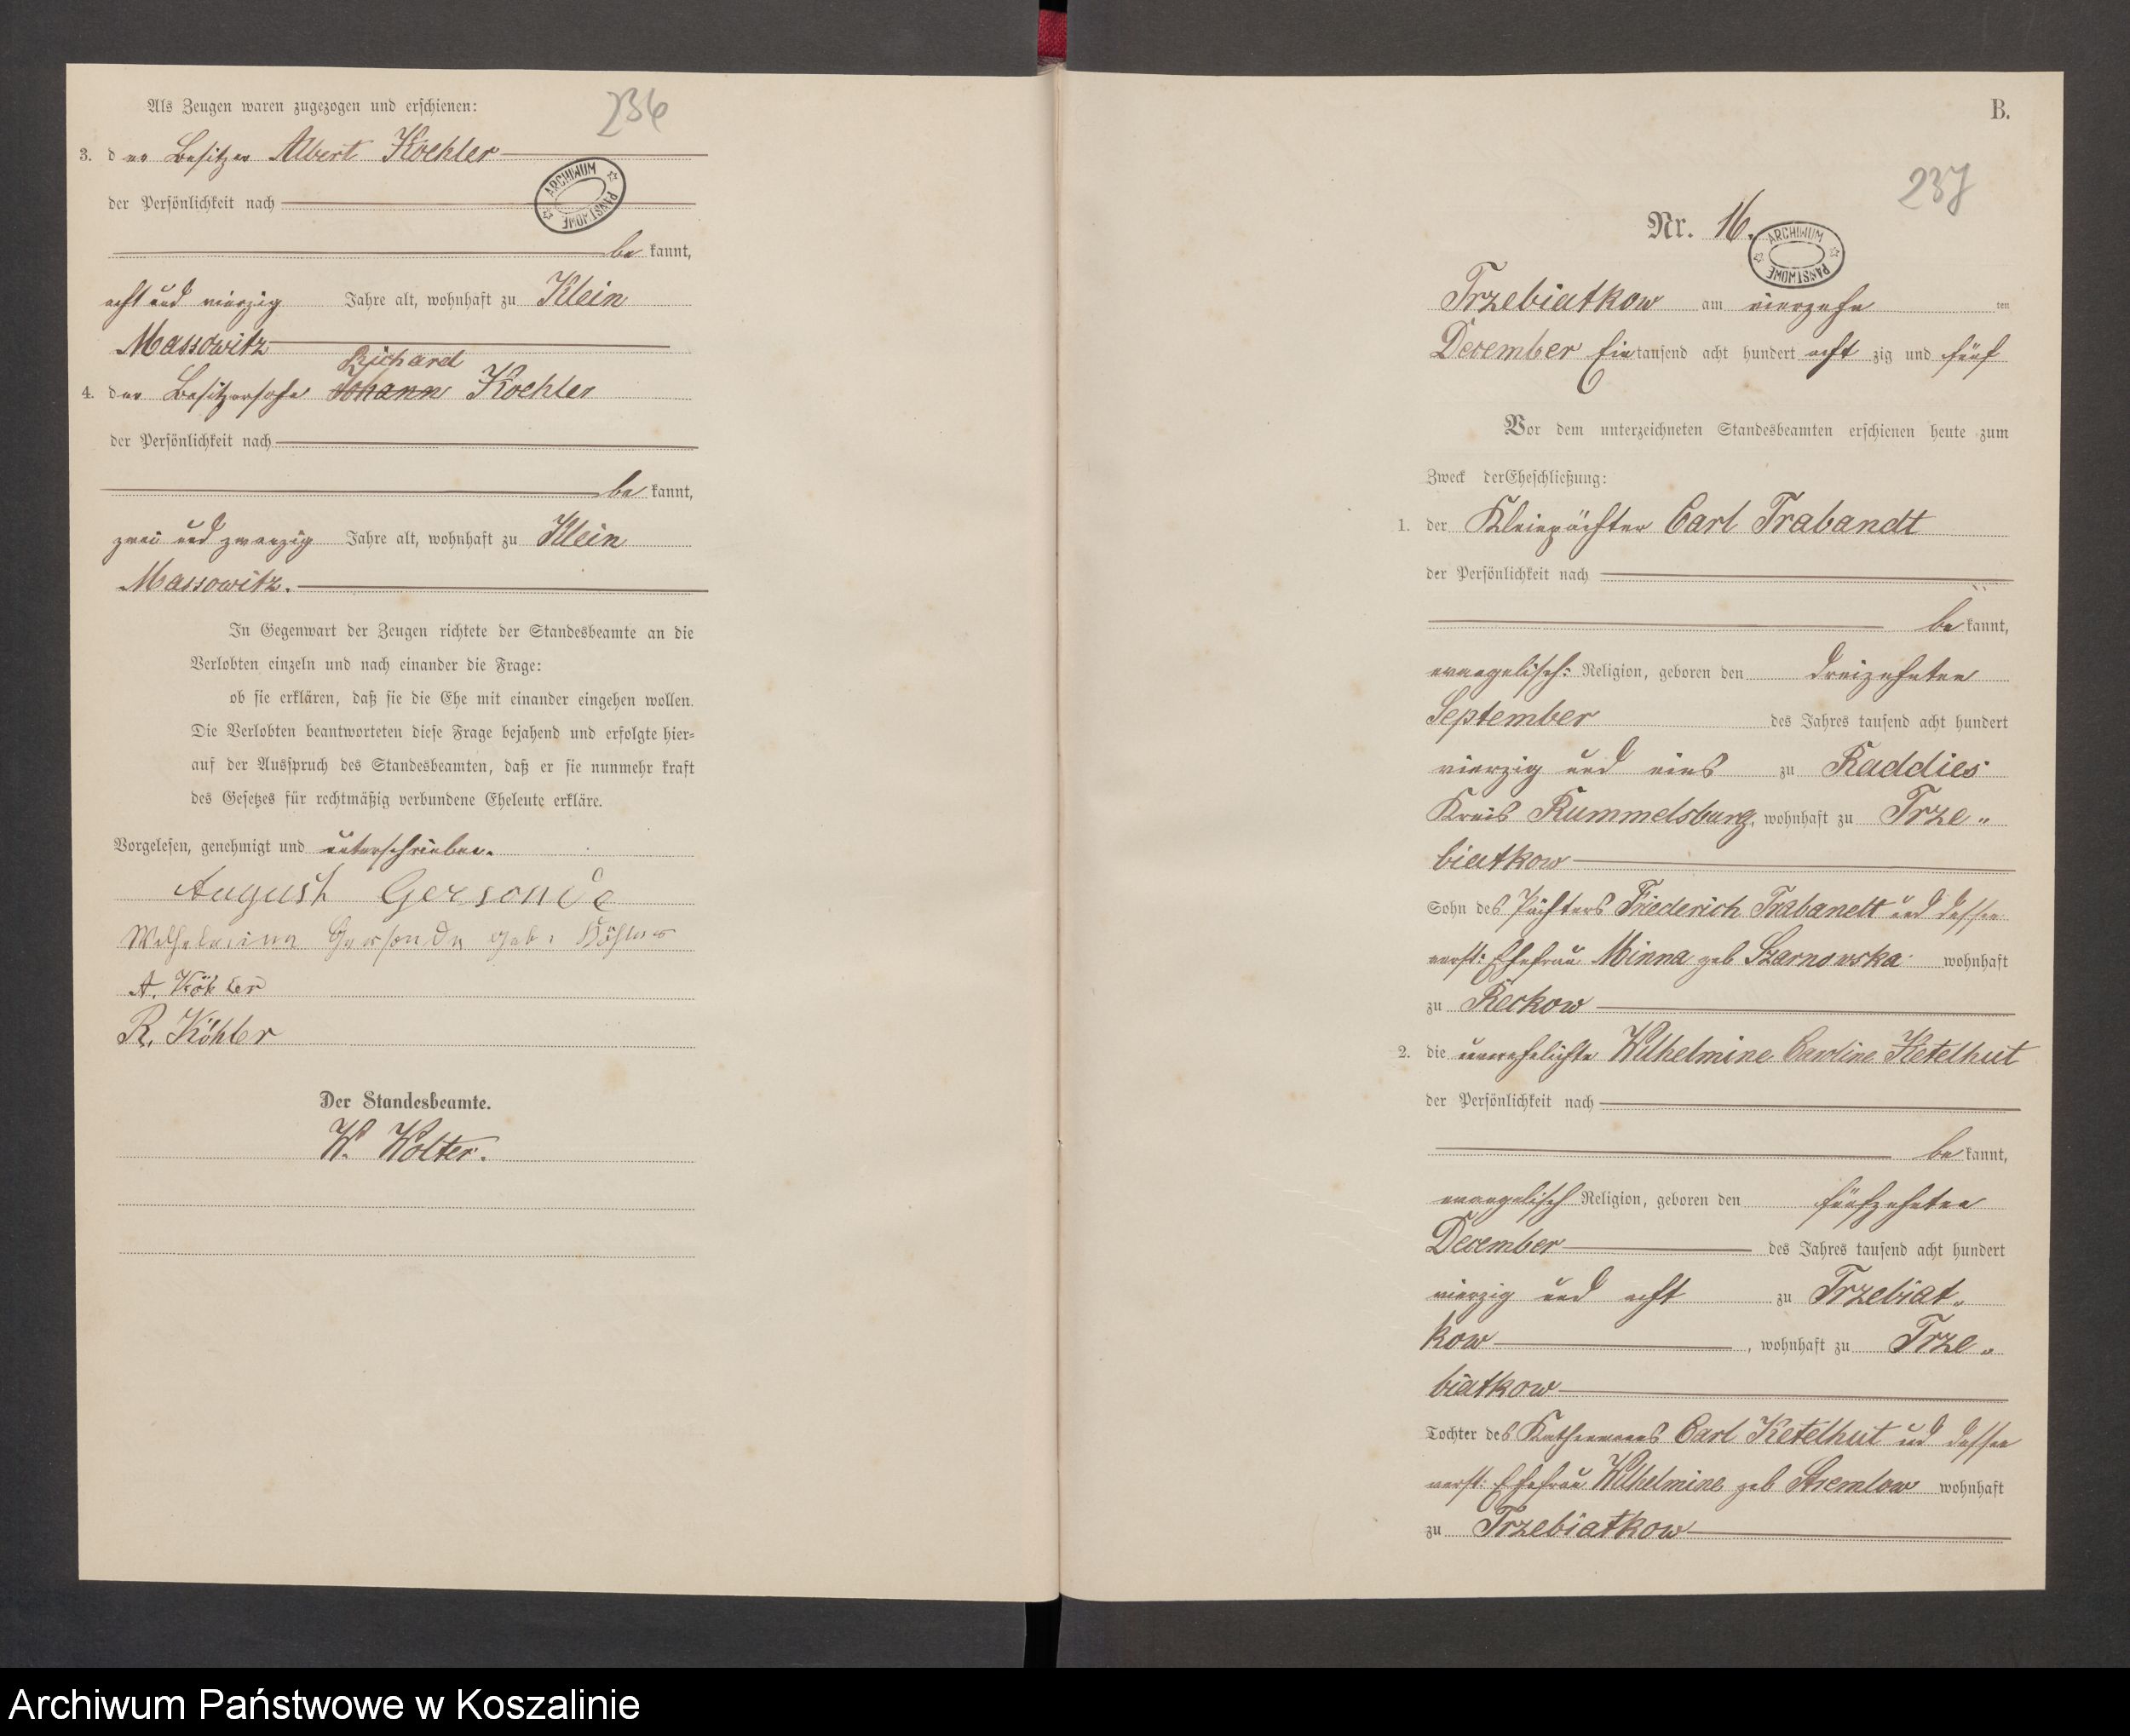 Als Zeugen waren zugezogen und erschienen:
236
3. der Besitzer Albert Koehler
ARCHIWUM PAŃSTWOWE
der Persönlichkeit nach
be kannt,
acht und vierzig Jahre alt, wohnhaft zu Klein
Massowitz
Richard
4. der Besitzersohn Johann Koehler
der Persönlichkeit nach
be kannt,
zwei und zwanzig Jahre alt, wohnhaft zu Klein
Massowitz.
In Gegenwart der Zeugen richtete der Standesbeamte an die
Verlobten einzeln und nach einander die Frage:
ob sie erklären, daß sie die Ehe mit einander eingehen wollen.
Die Verlobten beantworteten diese Frage bejahend und erfolgte hier=
auf der Ausspruch des Standesbeamten, daß er sie nunmehr kraft
des Gesetzes für rechtmäßig verbundene Eheleute erkläre.
Vorgelesen, genehmigt und unterschrieben.
August Gersonde
Gersonde geb. Köhler
A. Köhler
R. Köhler
Der Standesbeamte.
W. Wolter.
B.
237
Nr. 16.
ARCHIWUM PAŃSTWOWE
Trzebiatkow am vierzehn ten
December Ein tausend acht hundert acht zig und fünf
Vor dem unterzeichneten Standesbeamten erschienen heute zum
Zweck der Eheschließung:
1. der Kleinpächter Carl Trabandt
der Persönlichkeit nach
be kannt,
evangelisch: Religion, geboren den dreizehnten
September des Jahres tausend acht hundert
vierzig und eins zu Raddies
Kreis Rummelsburg, wohnhaft zu Trze„
biatkow
Sohn des Pächters Friederich Trabandt und dessen
verst: Ehefrau Minna geb Szarnowska wohnhaft
zu Reckow
2. die unverehelichte Wilhelmine Caroline Ketelhut
der Persönlichkeit nach
be kannt,
evangelisch Religion, geboren den fünfzehnten
December des Jahres tausend acht hundert
vierzig und acht zu Trzebiat„
kow, wohnhaft zu Trze„
biatkow
Tochter des Kathenmanns Carl Ketelhut und dessen
verst: Ehefrau Wilhelmine geb Stremlow wohnhaft
zu Trzebiatkow
Archiwum Państwowe w Koszalinie